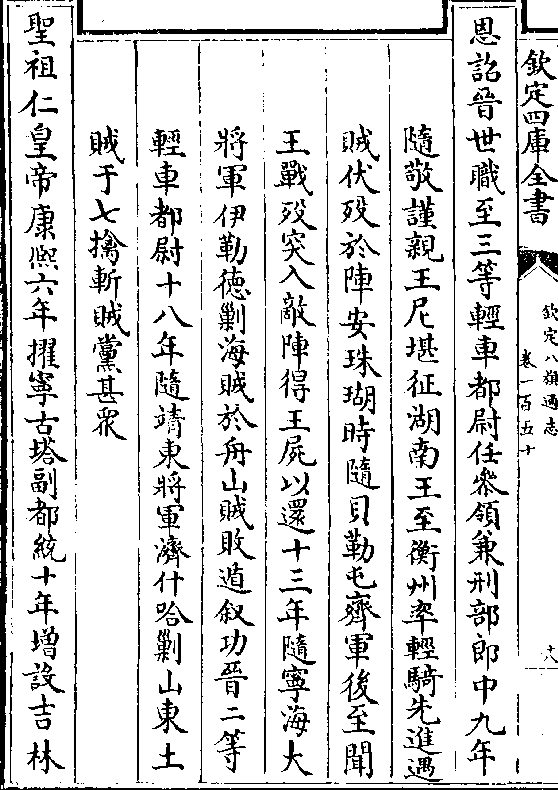 欽定四庫全書
欽定八旗通志
卷一百五十
十八
恩詔晉世職至三等輕車都尉任叅領兼刑部郎中九年
隨敬謹親王尼堪征湖南王至衡州率輕騎先進遇
賊伏歿於陣安珠瑚時隨貝勒屯齊軍後至聞
王戰歿突入敵陣得王屍以還十三年隨寧海大
將軍伊勒德剿海賊於舟山賊敗遁叙功晉二等
輕車都尉十八年隨靖東將軍濟什哈剿山東土
賊于七擒斬賊黨甚眾
聖祖仁皇帝康熙六年擢寧古塔副都統十年增設吉林